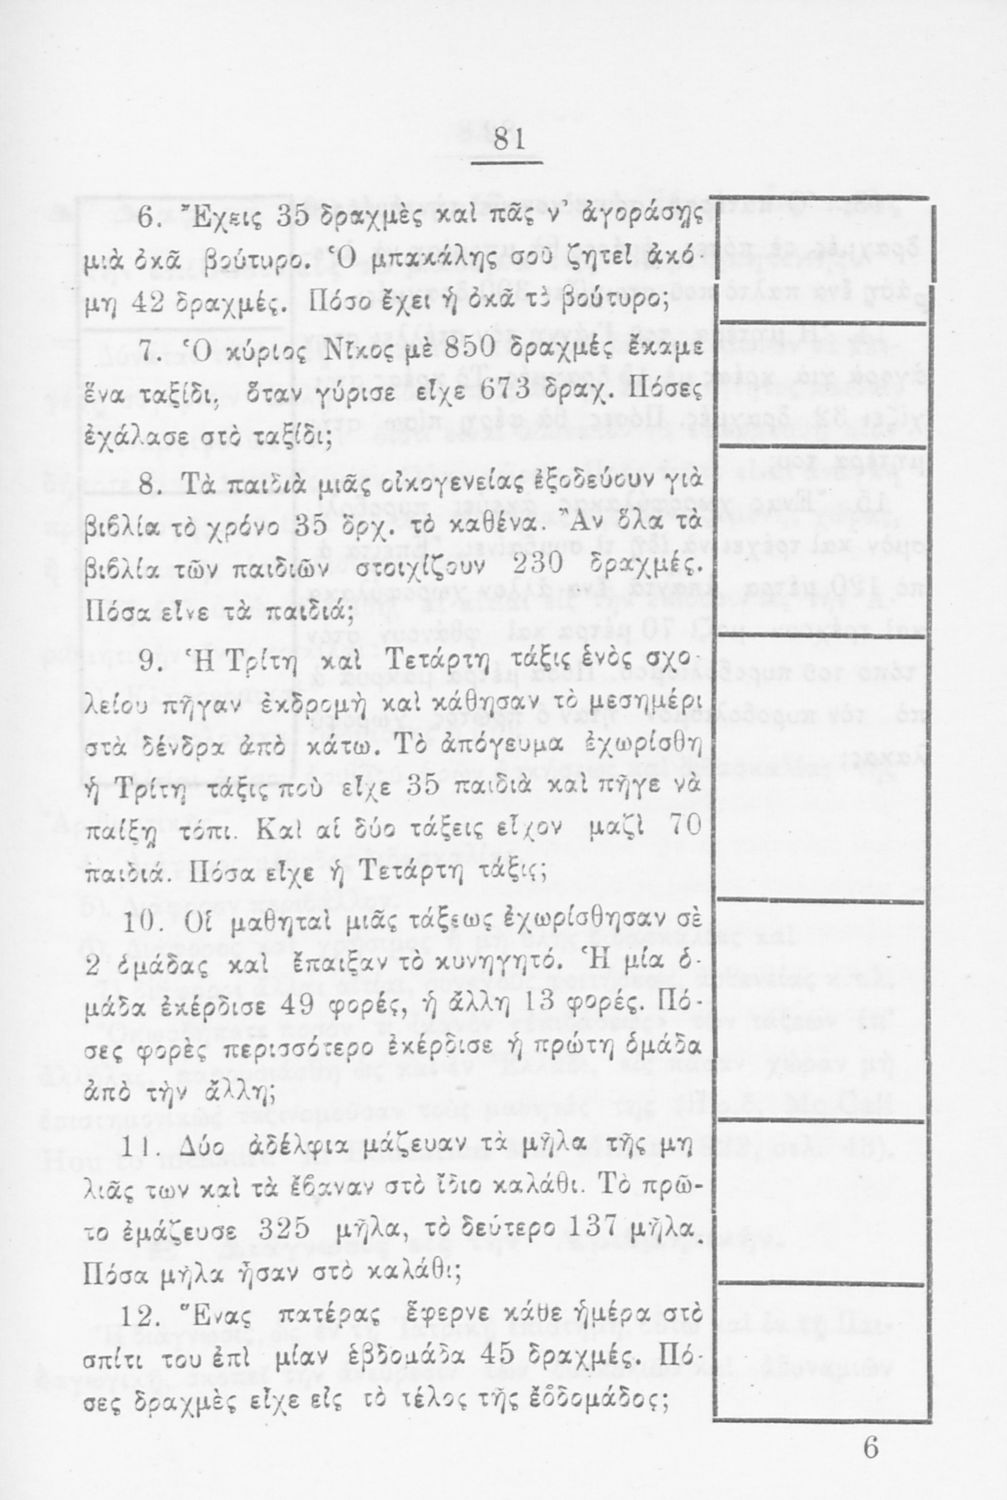 81
6. Ἔχεις 35 δραχμὲς καὶ πᾶς ν’ ἀγοράσῃς
μιὰ ὀκᾶ βούτυρο. Ὁ μπακάλης σοῦ ζητεῖ ἀκό-
μη 42 δραχμές. Πόσο ἔχει ἡ ὀκᾶ τὸ βούτυρο;
7. Ὁ κύριος Νῖκος μὲ 850 δραχμές ἔκαμε
ἕνα ταξίδι, ὅταν γύρισε εἶχε 673 δραχ. Πόσες
ἐχάλασε στὸ ταξίδι;
8. Τὰ παιδιὰ μιᾶς οἰκογενείας ἐξοδεύουν γιὰ
βιβλία τὸ χρόνο 35 δρχ. τὸ καθένα. Ἂν ὅλα τὰ
βιβλία τῶν παιδιῶν στοιχίζουν 230 δραχμές.
Πόσα εἶνε τὰ παιδιά;
9. Ἡ Τρίτη καὶ Τετάρτη τάξις ἑνὸς σχο-
λείου πῆγαν ἐκδρομὴ καὶ κάθησαν τὸ μεσημέρι
στὰ δένδρα ἀπὸ κάτω. Τὸ ἀπόγευμα ἐχωρίσθη
ἡ Τρίτη τάξις ποὺ εἶχε 35 παιδιὰ καὶ πῆγε νὰ
παίξῃ τόπι. Καὶ αἱ δύο τάξεις εἶχον μαζὶ 70
παιδιά. Πόσα εἶχε ἡ Τετάρτη τάξις;
10. Οἱ μαθηταὶ μιᾶς τάξεως ἐχωρίσθησαν σὲ
2 ὁμάδας καὶ ἔπαιξαν τὸ κυνηγητό. Ἡ μία ὁ-
μάδα ἐκέρδισε 49 φορές, ἡ ἄλλη 13 φορές. Πό-
σες φορὲς περισσότερο ἐκέρδισε ἡ πρώτη ὁμάδα
ἀπὸ τὴν ἄλλη;
11. Δύο ἀδέλφια μάζευαν τὰ μῆλα τῆς μη
λιᾶς των καὶ τὰ ἔβαναν στὸ ἴδιο καλάθι. Τὸ πρῶ-
το ἐμάζευσε 325 μῆλα, τὸ δεύτερο 137 μῆλα.
Πόσα μῆλα ἦσαν στὸ καλάθι;
12. Ἕνας πατέρας ἔφερνε κάθε ἡμέρα στὸ
σπίτι του ἐπὶ μίαν ἑβδομάδα 45 δραχμές. Πό-
σες δραχμὲς εἶχε εἰς τὸ τέλος τῆς ἑβδομάδος;
6